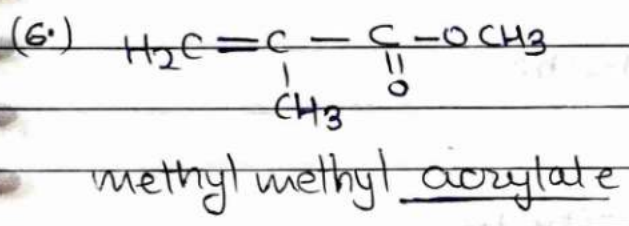 (6.) H2C=C-C-OCH3
||
O
CH3
methyl methyl acrylate